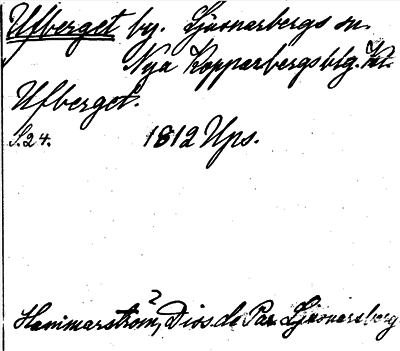 Ufberget by. Ljusnarbergs sn.
Nya Kopparbergs blg. Kt.
Ufberget.
S.24. 1812 Ups.
Hammarström, Diss. de Par. Ljusnarsberg